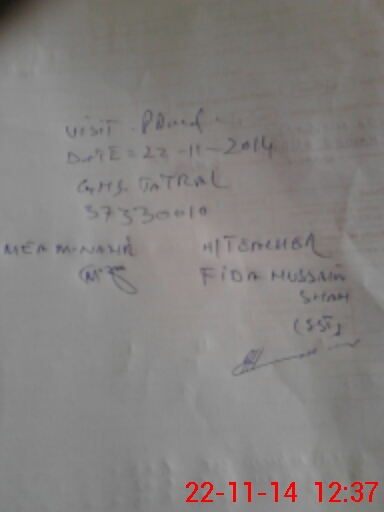 VISIT. Proof.
DATE = 22-11-2014
GHS. TATRAL
37330010
MEA M. NASIR H/TEACHER
FIDA HUSSAIN
SHAH
(SST)
22-11-14 12:37